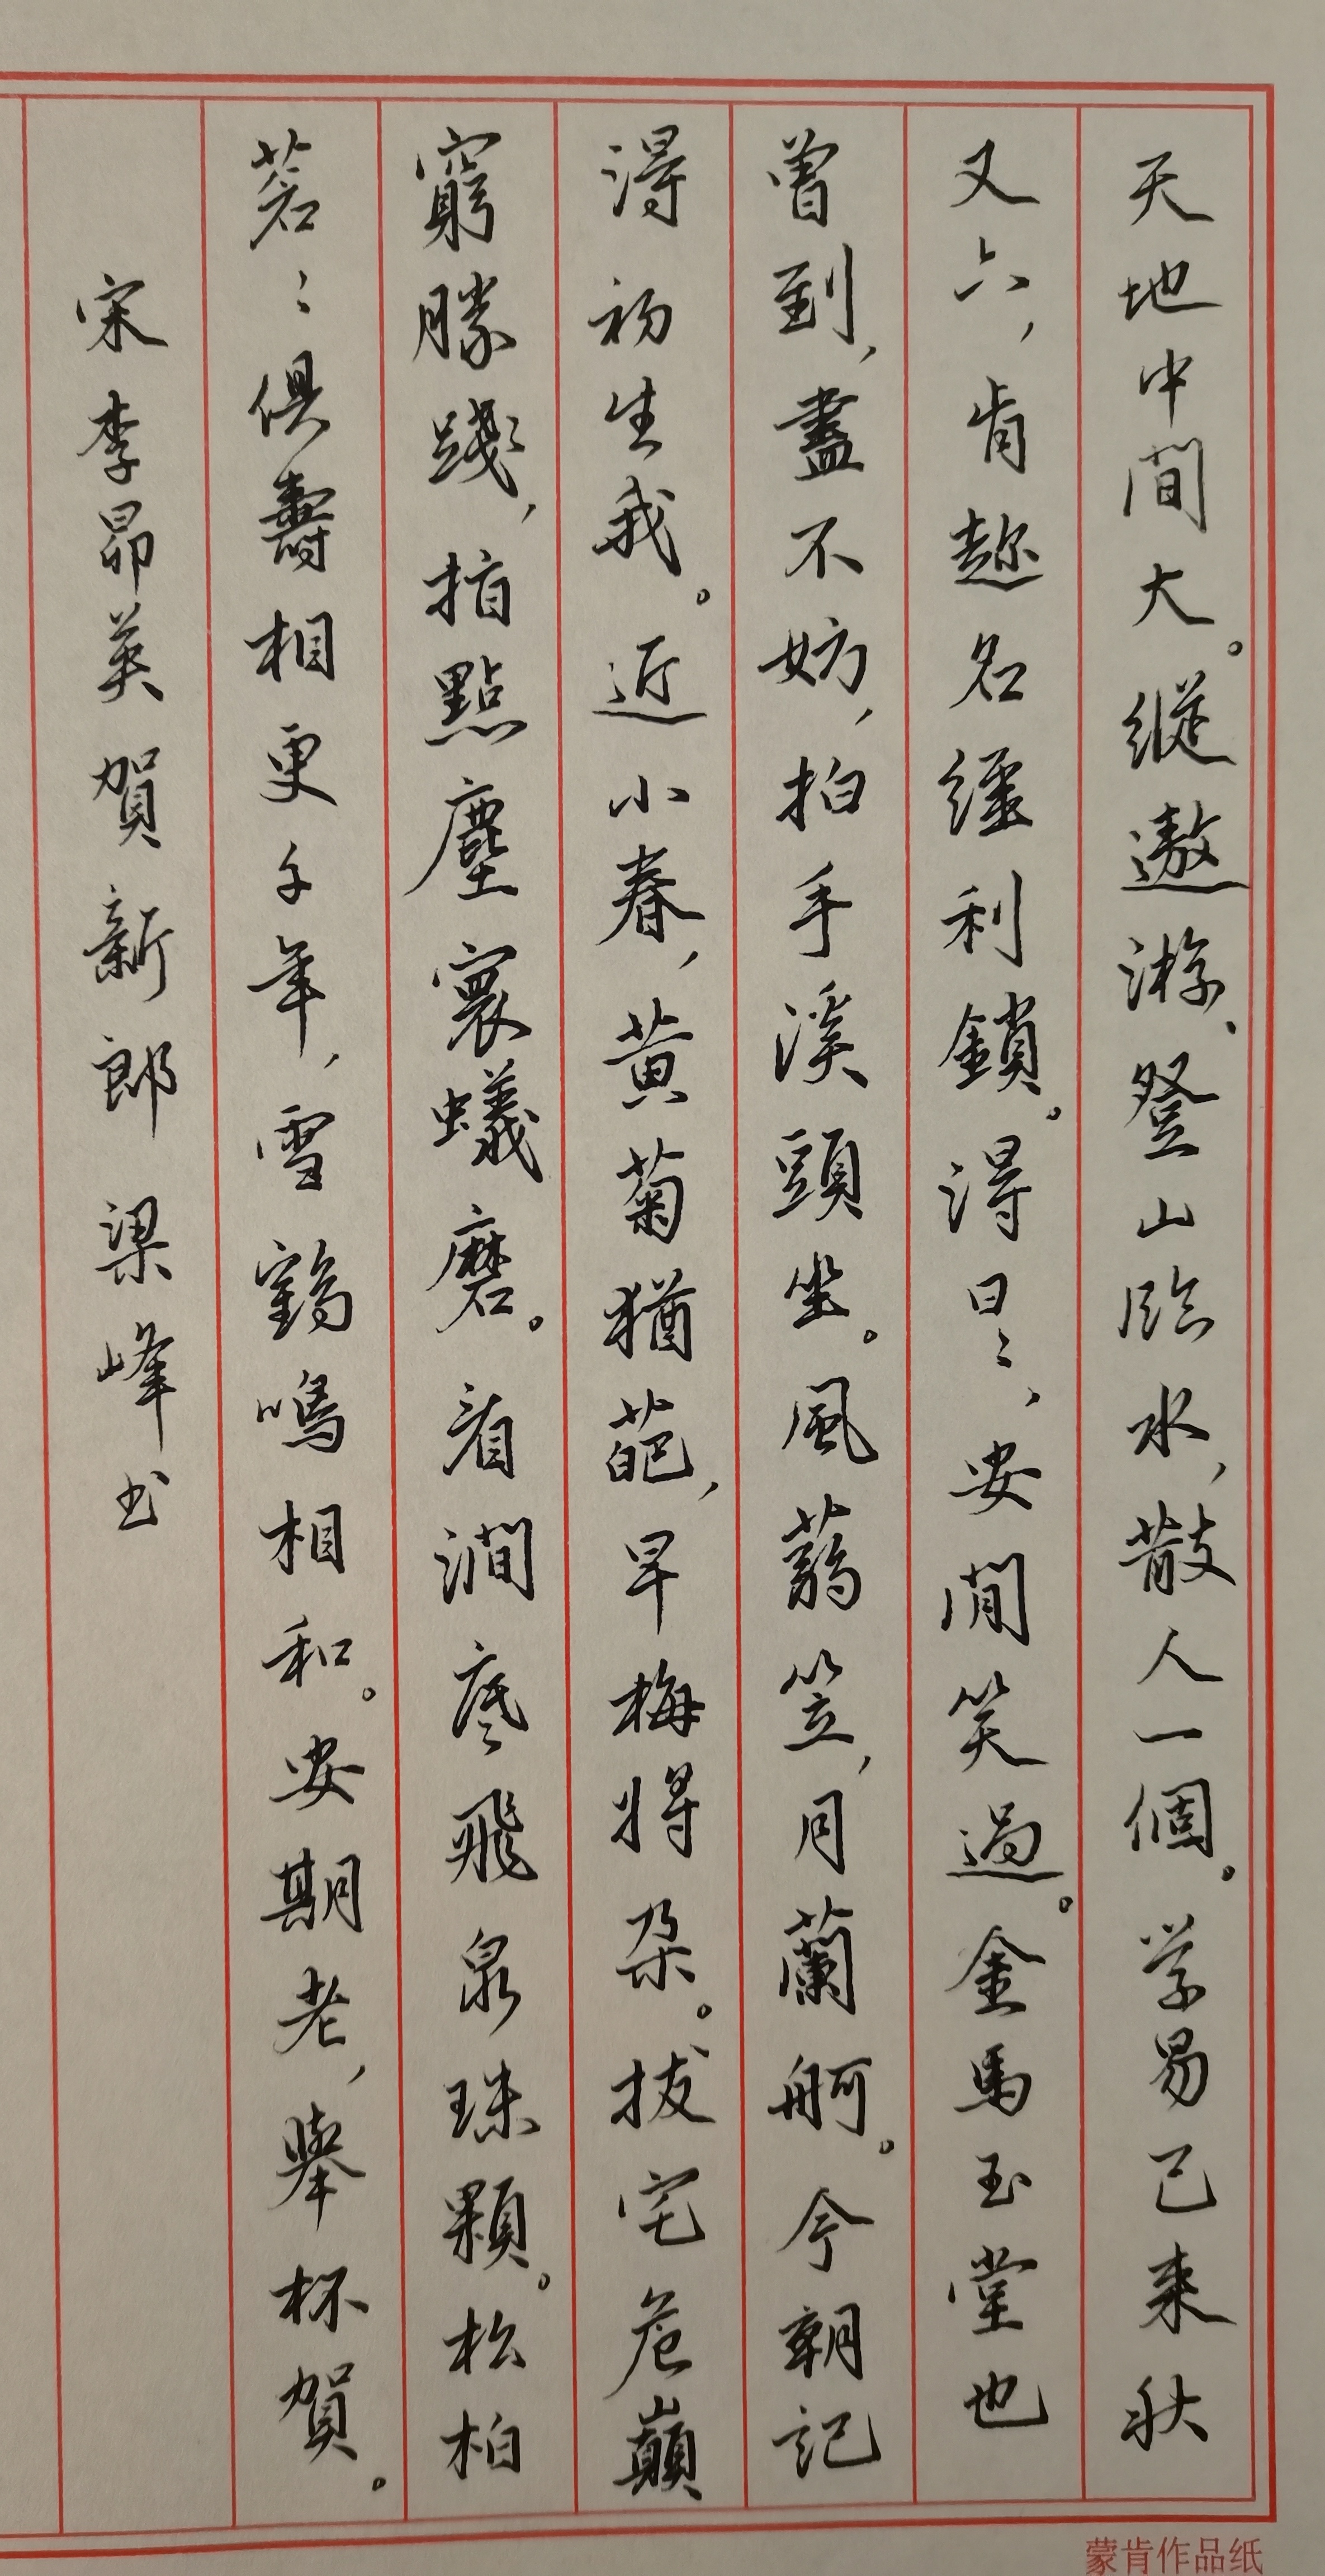 天地中間大。縱遨游、登山臨水，散人一個。学易已来秋
又六，肯趂名繮利鎖。得日〻、安閒笑過。金馬玉堂也
曾到，盡不妨，拍手溪頭坐。風蒻笠，月蘭舸。今朝記
得初生我。近小春，黄菊猶葩，早梅将朶。拔宅危巔
窮勝踐，指點塵寰蟻磨。看澗底飛泉珠顆。松柏
茗〻俱壽相更千年，雪鶴鳴相和。安期老，舉杯賀。
宋李昴英賀新郎 梁峰书
蒙肯作品纸